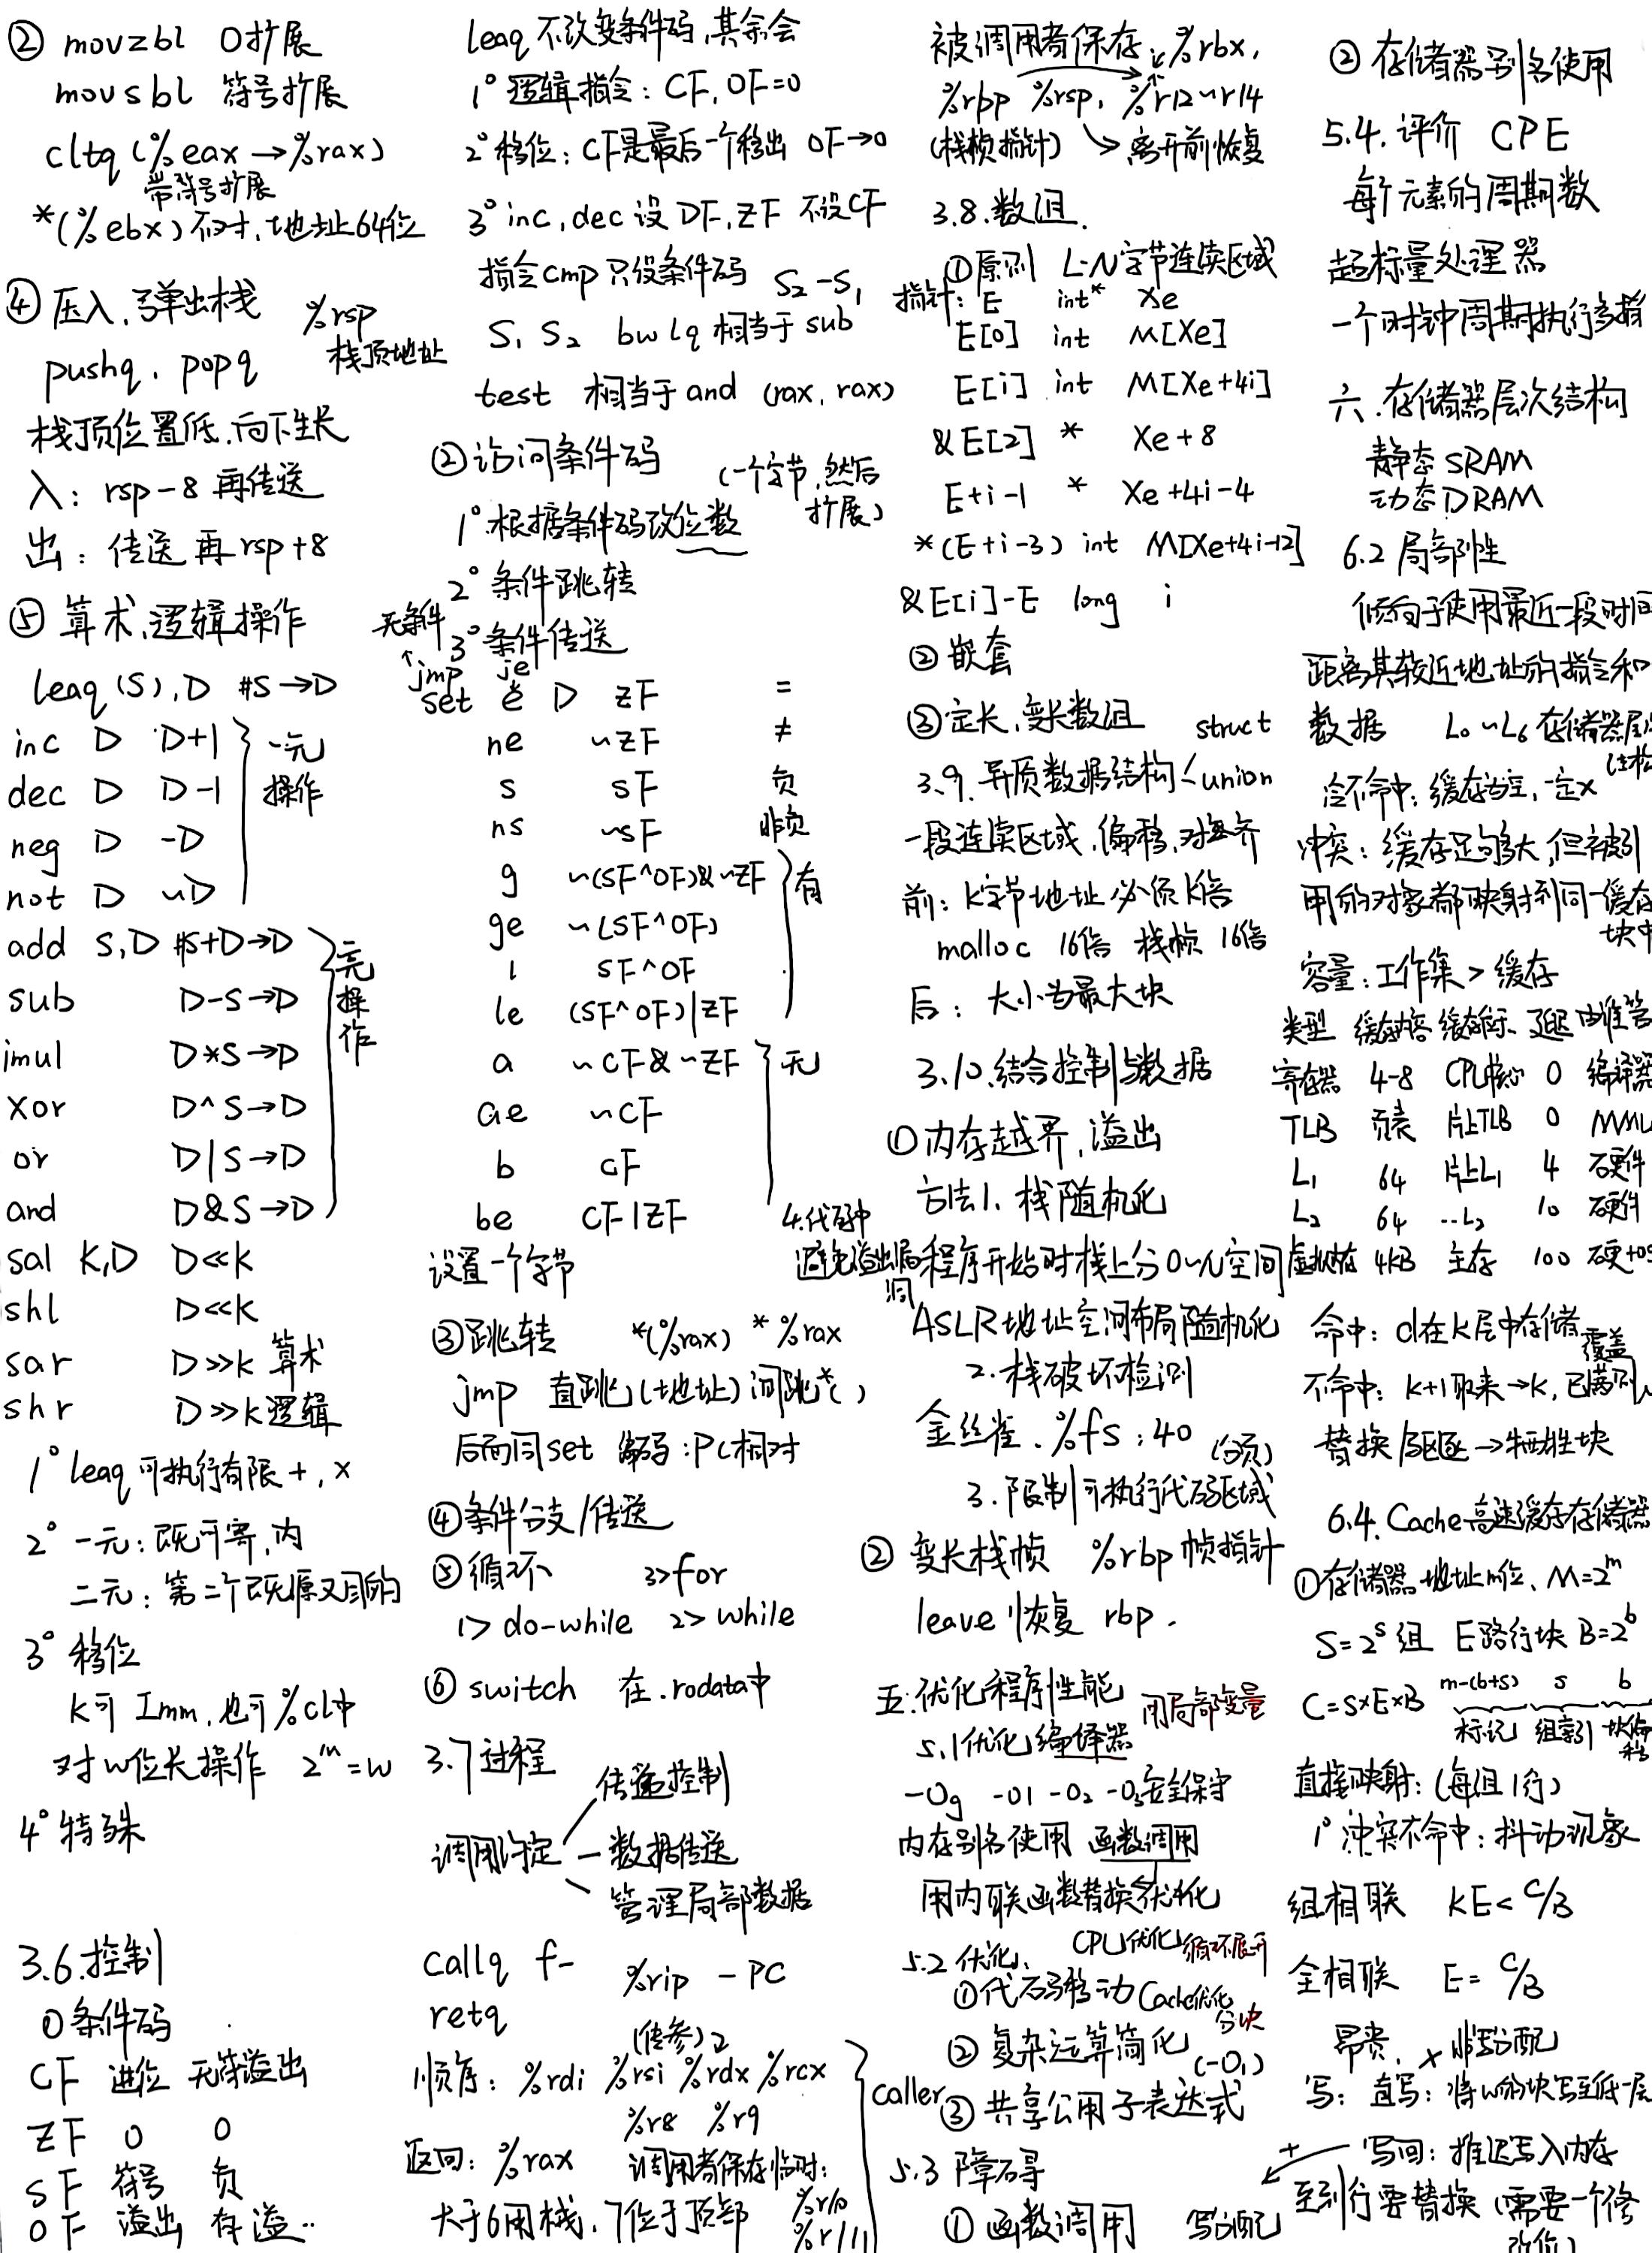 ② movzbl 0扩展
movsbl 符号扩展
cltq (%eax→%rax)
带符号扩展
*(%ebx) 不对,地址64位
④ 压入、弹出栈 %rsp
栈顶地址
pushq, popq
栈顶位置低,向下生长
入: rsp-8 再传送
出: 传送再rsp+8
⑤ 算术、逻辑操作
leaq (S), D #S→D
inc D D+1 一元
dec D D-1 操作
neg D -D
not D ~D
add S,D #S+D→D 二元
sub D-S→D 操
imul D*S→D 作
xor D^S→D
or D|S→D
and D&S→D
sal K,D D<<K
shl D<<K
sar D>>K 算术
shr D>>K 逻辑
1° leaq可执行有限+,×
2° 一元:既可寄,内
二元:第二个既源又目的
3° 移位
K可Imm,也可%cl中
对w位长操作 2^m=w
4° 特殊
3.6.控制
① 条件码
CF 进位 无符溢出
ZF 0 0
SF 符号 负
OF 溢出 有溢..
leaq不改变条件码,其余会
1° 逻辑指令: CF, OF=0
2° 移位: CF是最后一个移出 OF→0
3° inc, dec 设 OF, ZF 不设CF
指令cmp只设条件码 S₂-S₁
S₁ S₂ bwlq 相当于sub
test 相当于and (rax, rax)
② 访问条件码 (一个字节,然后
扩展)
1° 根据条件码改位数
2° 条件跳转
无条件 3° 条件传送
↑jmp je
set e D ZF =
ne ~ZF ≠
s SF 负
ns ~SF 非负
g ~(SF^OF)&~ZF 有
ge ~(SF^OF)
l SF^OF
le (SF^OF)|ZF
a ~CF&~ZF 无
ae ~CF
b CF
be CF|ZF
设置一个字节
③ 跳转 *(%rax) *%rax
jmp 直跳(+地址) 间跳*( )
后面同set 编码:PC相对
④ 条件分支/传送
⑤ 循环 3>for
1> do-while 2> while
⑥ switch 在.rodata中
3.7 过程
传递控制
调用约定 — 数据传送
管理局部数据
callq f- %rip - PC
retq
(传参)2
顺序: %rdi %rsi %rdx %rcx
%r8 %r9 caller
返回: %rax 调用者保存临时:
大于6用栈,7位于顶部 %r10
%r11
被调用者保存: %rbx,
%rbp %rsp, %r12~r14
(栈帧指针) ↘离开前恢复
3.8.数组.
① 原则 L·N字节连续区域
指针: E int* Xe
E[0] int M[Xe]
E[i] int M[Xe+4i]
&E[2] * Xe+8
E+i-1 * Xe+4i-4
*(E+i-3) int M[Xe+4i-12]
&E[i]-E long i
② 嵌套
③ 定长,变长数组 struct
3.9.异质数据结构<union
一段连续区域,偏移,对齐
前: K字节地址必须K倍
malloc 16倍 栈帧 16倍
后: 大小为最大块
3.10.结合控制与数据
① 内存越界,溢出
方法1. 栈随机化
4.代码中
避免溢出漏
洞
程序开始时栈上分0~N空间
ASLR地址空间布局随机化
2.栈破坏检测
金丝雀.%fs:40 (分页)
3.限制可执行代码区域
② 变长栈帧 %rbp 帧指针
leave 恢复 rbp.
五.优化程序性能 用局部变量
5.1优化编译器
-Og -O1 -O2 -O3安全保守
内存别名使用 函数调用
用内联函数替换优化
CPU优化 循环展开
5.2 优化.
① 代码移动 Cache优化
分块
② 复杂运算简化 (-O₁)
③ 共享公用子表达式
5.3 障碍
① 函数调用 写分配
② 存储器别名使用
5.4.评价 CPE
每个元素的周期数
超标量处理器
一个时钟周期执行多指
六.存储器层次结构
静态SRAM
动态DRAM
6.2 局部性
倾向于使用最近一段时间
距离其较近地址的指令和
数据 L₀~L₆ 存储器层
冷不命中:缓存为空,一定×
冲突:缓存足够大,但被引
用的对象都映射到同一缓存
块中
容量:工作集>缓存
类型 缓存内容 缓存何处 延迟 由谁管
寄存器 4-8 CPU核心 0 编译器
TLB 页表 片上TLB 0 MMU
L₁ 64 片上L₁ 4 硬件
L₂ 64 ..L₂ 10 硬件
虚拟内存 4KB 主存 100 硬+OS
命中: d在K层中存储
覆盖
不命中: K+1取来→K,已满则
替换/驱逐→牺牲块
6.4.Cache高速缓存存储器
① 存储器地址m位, M=2^m
S=2^s组 E路行块 B=2^b
C=S×E×B m-(b+s) s b
标记 组索引 块偏
移
直接映射:(每组1行)
1° 冲突不命中:抖动现象
组相联 KE<C/B
全相联 E=C/B
昂贵. ×非写分配
写: 直写: 将w的块写至低一层
+ 写回:推迟写入内存
至到行要替换(需要一个修
改位)